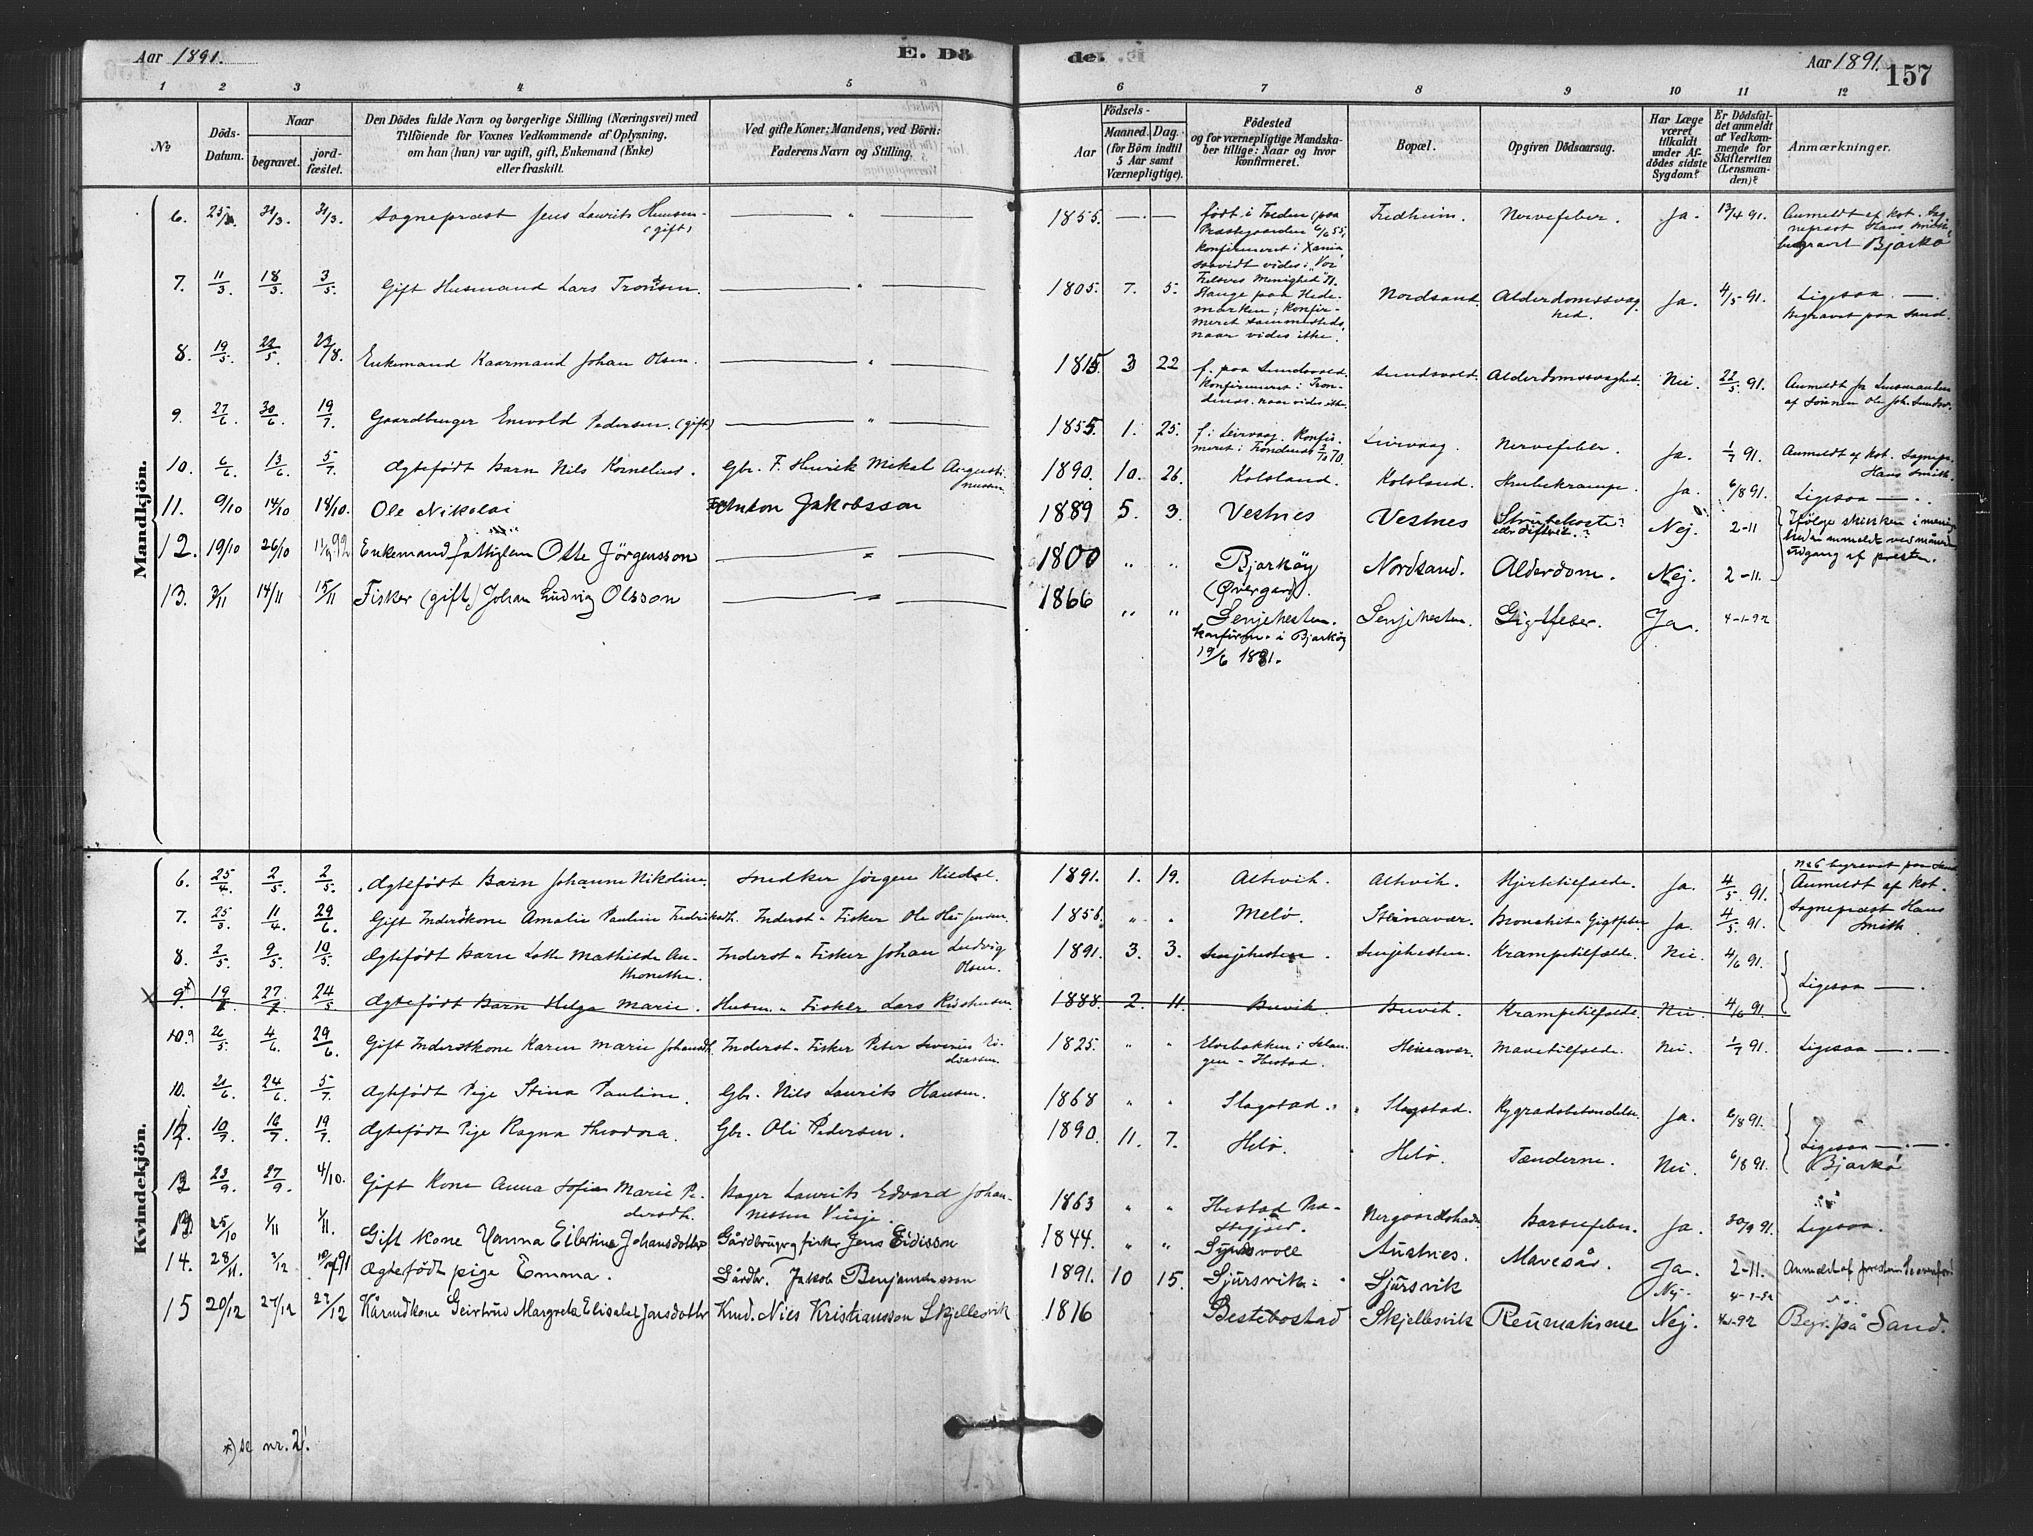 Aar 1891. E. Dö de. Aar 1891. 157
1 2 3 4 5 6 7 8 9 10 11 12
No.
Döds-
Datum.
Naar
begravet.
jord-
fæstet.
Den Dödes fulde Navn og borgerlige Stilling (Næringsvei) med
Tilföiende for Voxnes Vedkommende af Oplysning,
om han (hun) var ugift, gift, Enkemand (Enke)
eller fraskilt.
Ved gifte Koner: Mandens, ved Börn:
Faderens Navn og Stilling.
Födsels-
Aar
Maaned. Dag.
(for Börn indtil
5 Aar samt
Værnepligtige).
Födested
og for værnepligtige Mandska-
ber tillige: Naar og hvor
konfirmeret.
Bopæl.
Opgiven Dödsaarsag.
Har Læge
været
tilkaldt
under Af-
dödes sidste
Sygdom?
Er Dödsfal-
det anmeldt
af Vedkom-
mende for
Skifteretten
(Lensman-
den)?
Anmærkninger.
Mandkjön.
6. 31/3. 31/3. Sognepræst Jens Laurits Hansen (gift) — " — 1855. — — født i Tveden (paa Præstegaarden 6/6 55, konfirmeret i Xania saavidt vides i "Vor Frelsers Menighed" Fredheim. Nervefeber. Ja. 13/4 91. Anmeldt af kst. Sognepræst Hans Smith. begravet Bjarkø
7. 11/3. 18/3. 3/5. Gift Husmand Lars Tronsen. — " — 1805. 7. 5. Stange paa Hedemarken; konfirmeret sammesteds, naar vides ikke. Nordsand. Alderdomssvaghed. Ja. 4/5 91. Ligesaa. — . begravet paa Sand.
8. 19/5. 22/5. 23/8. Enkemand Kaarmand Johan Olsen. — " — 1815 3 22 f. paa Sundsvold. konfirmeret i Trondenæs. naar vides ikke. Sundsvold. Alderdomssvaghed. Nei. 22/5 91. Anmeldt for Lensmanden af Sønnen Ole Joh. Sundsv.
9. 27/6. 30/6. 19/7. Gaardbruger Enevold Pedersen. (gift) — " — 1855. 1. 25. f. i Leirvaag. Konfirmeret i Trondenæs 2/10 70. Leirvaag. Nervefeber. Ja. 1/7 91. Anmeldt af kst. Sognepr. Hans Smith.
10. 6/6. 13/6. 5/7. Ægtefødt Barn Nils Kornelius. Gbr. F. Henrik Mikal Augustinussen. 1890. 10. 26. Kolsland. Kolsland. Strubekrampe. Ja. 6/8 91. Ligesaa — . .
11. 9/10 14/10 14/10. Ole Nikolai Anton Jakobsson 1889 5. 3. Vestnes Vestnes Strubehoste? eller Difterit.? Nej. 2-11 Ifølge skikken i menigheden anmeldt ved måneds udgang af presten.
12. 19/10 26/10 92 Enkemand fattiglem Otte Jörgensson — " — 1800 " " Bjarköy (Øvergard). Nordsand. Alderdom. Nej. 2-11.
13. 3/11 14/11 15/11 Fisker (gift) Johan Ludvig Olsson — " — 1866 " " Senjehesten. konfirm. i Bjarköy 19/6 1881. Senjehesten. Gigtfeber. Ja. 4-1-92
Kvindekjön.
6. 25/4. 2/5. 2/5. Ægtefødt Barn Johanne Nikoline. Snedker Jørgen Hildal. 1891. 1. 19. Altevik. Altevik. Hjertetilfælde. Ja. 4/5 91. No 6 begravet paa Sand Anmeldt af kst. Sognepræst Hans Smith.
7. 25/3. 11/4. 29/6. Gift Inderstkone Amalie Pauline Fredriksdt. Inderst - Fisker Ole Hei Jensen 1856. " " Melø. Steinavær. Bronchit - Gigtfeber Ja. 4/5 91.
8. 2/5. 9/5. 10/5. Ægtefødt Barn Lotte Mathilde Anthonette. Inderst - Fisker Johan Ludvig Olsen. 1891. 3. 3. Senjehesten. Senjehesten. Krampetilfælde. Nei. 4/6 91. Ligesaa — .
X 9.*) 19/ 27/ 24/5 Ægtefødt Barn Helga Marie. Husm. - Fisker Lars Kristensen. 1888. 2. 11. Buvik. Buvik. Krampetilfælde. Nei. 4/6 91.
10.9 26/5. 4/6. 29/6. Gift Inderstkone Karen Marie Johansdt. Inderst - Fisker Peter Severin Edvardsen. 1825. " " Elvebakken i - Ibestad. Steinavær. Mavetilfælde. Nei. 1/7 91. Ligesaa — . —
10. 21/6. 24/6. 5/7. Ægtefødt Pige Stina Pauline. Gbr. Nils Laurits Hansen. 1868 " " Slagstad. " Slagstad. Rygradsbetændelse. Ja. 6/8 91.
12 10/7. 16/7. 19/7. Ægtefødt Pige Ragna Theodora. Gbr. Oli Pedersen. 1890. 11. 7. Helø. Helø. Tænderne. Nei. 6/8 91. Ligesaa — . — Bjarkø
23/9. 27/9. 4/10. Gift Kone Anna Sofie Marie Pedersdt. Bager Laurits Edvard Johannessen 1863 " " Ibestad Nergaardshavn Barselfeber. Ja. 30/9 91. Ligesaa.
25/10 1/11 1/11. Gift kone Hanna Eilertine Johansdotter Gårdbruger og fisker Jens Eidisson 1844. " " Sundsvoll Austnes. Mavesår. Ja. 2-11. Anmeldt af presten
14. 28/11. 2/12 91 Ægtefødt pige Emma. Gårdbr. Jakob Benjaminsson 1891. 10 15. Sjursvik. " Sjursvik Nej. 4-1-92
15 20/12 27/12 27/12 Kårmdkone Geirtrud Margreta Elisabet Jarsdotter Kmd. Nils Kristiansson Skjellesvik 1816 Bestebostad Skjellesvik Reumatisme Nej. 4-1-92 Begr. på Sand.
*) se nr. 2!